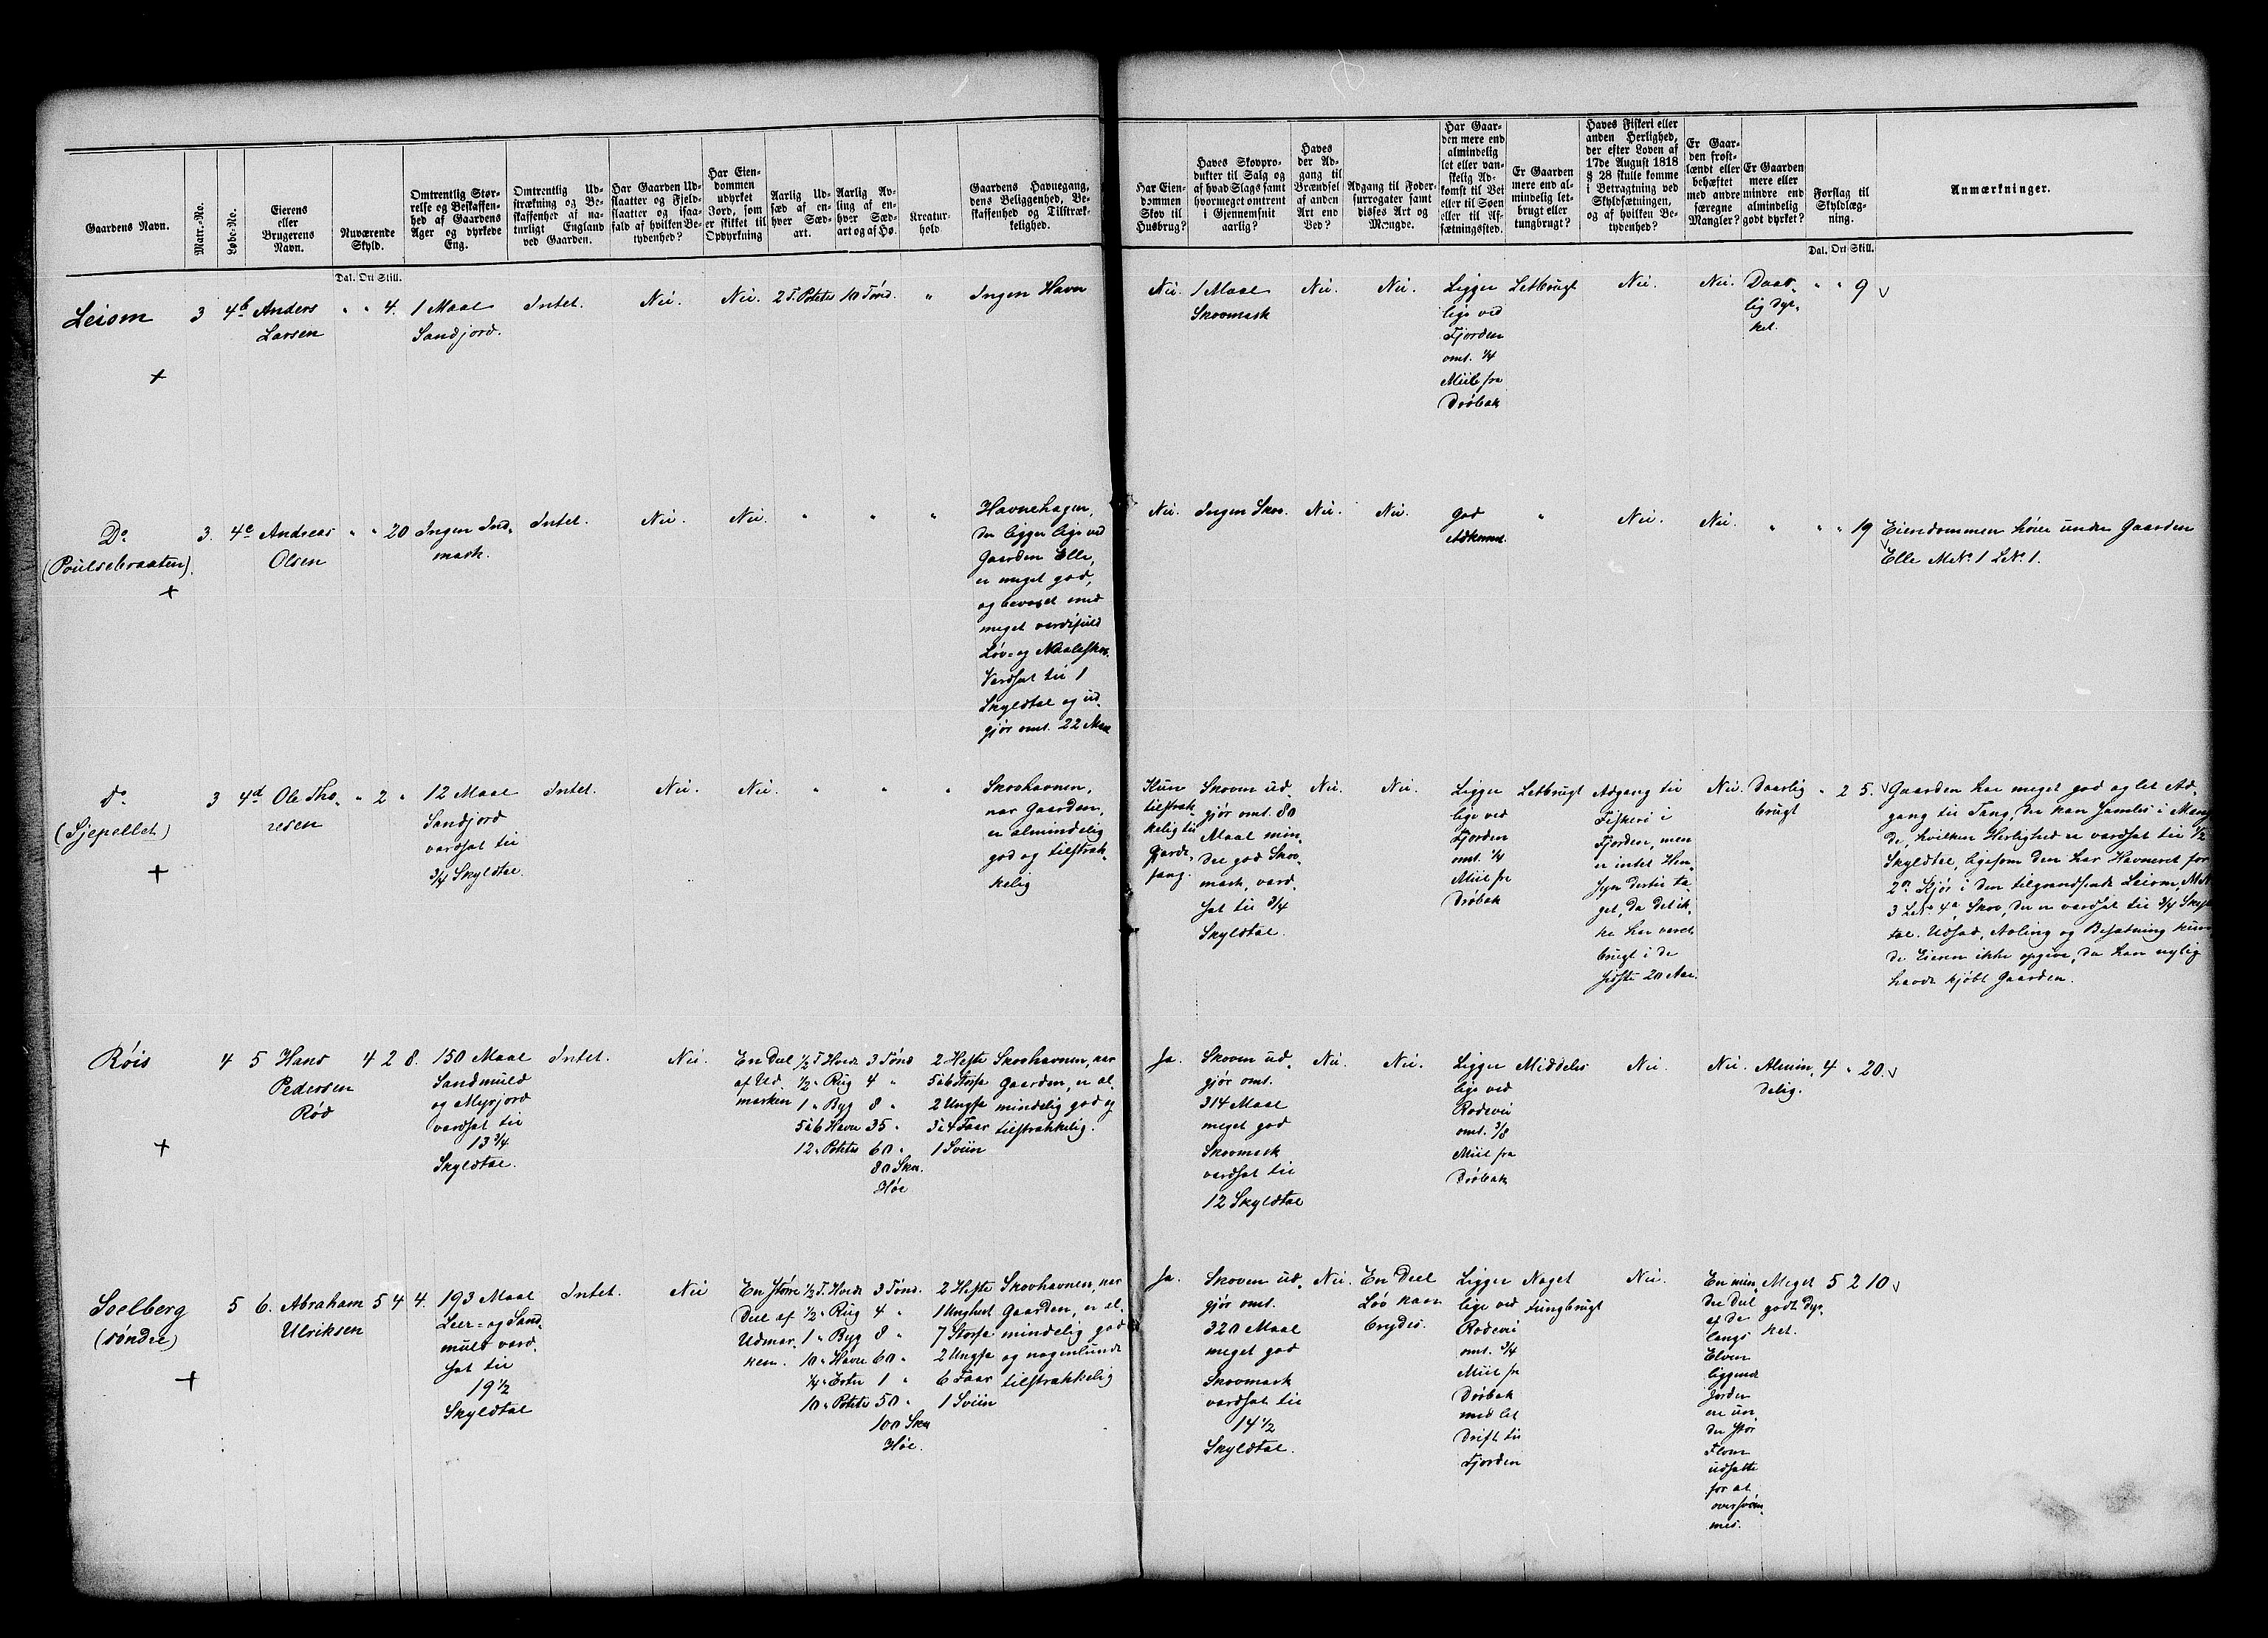 Gaardens Navn.
Matr.-No.
Løbe-No.
Eierens
eller
Brugerens
Navn.
Nuværende
Skyld.
Dal. Ort Skill.
Omtrentlig Stør-
relse og Beskaffen-
hed af Gaardens
Ager og dyrkede
Eng.
Omtrentlig Ud-
strækning og Be-
skaffenhed af na-
turligt England
ved Gaarden.
Har Gaarden Ud-
slaatter og Fjeld-
slaatter og isaa-
fald af hvilken Be-
tydenhed?
Har Eien-
dommen
udyrket
Jord, som
er skikket til
Opdyrkning
Aarlig Ud-
sæd af en-
hver Sæd-
art.
Aarlig Av-
ling af en-
hver Sæd-
art og af Hø.
Kreatur-
hold
Gaardens Havnegang,
dens Beliggenhed, Be-
skaffenhed og Tilstræk-
kelighed.
Har Eien-
dommen
Skov til
Husbrug?
Haves Skovpro-
dukter til Salg og
af hvad Slags samt
hvormeget omtrent
i Gjennemsnit
aarlig?
Haves
der Ad-
gang til
Brændsel
af anden
Art end
Ved?
Adgang til Foder-
surrogater samt
disses Art og
Mængde.
Har Gaar-
den mere end
almindelig
let eller van-
skelig Ad-
komst til Vei
eller til Søen
eller til Af-
sætningssted.
Er Gaarden
mere end al-
mindelig let-
brugt eller
tungbrugt?
Haves Fiskeri eller
anden Herlighed,
der efter Loven af
17de August 1818
§ 28 skulle komme
i Betragtning ved
Skyldsætningen,
og af hvilken Be-
tydenhed?
Er Gaar-
den frost-
lændt eller
behæftet
med andre
særegne
Mangler?
Er Gaarden
mere eller
mindre end
almindelig
godt dyrket?
Forslag til
Skyldlæg-
ning.
Dal. Ort Skill.
Anmærkninger.
Leiom
+
3
4b
Anders
Larsen
" " 4.
1 Maal
Sandjord.
Intet.
Nei.
Nei.
2 T. Potetes
10 Tønd.
"
Ingen Havn
Nei.
1 Maal
Skovmark
Nei.
Nei.
Ligger
lige ved
Fjorden
omt. 1/4
Miil fra
Drøbak
Letbrugt
Nei.
Nei.
Daar-
lig dyr-
ket.
" " 9
Do
(Poulsebraaten)
+
3.
4c
Andreas
Olsen
" " 20
Ingen Ind-
mark.
Intet.
Nei.
Nei.
"
"
"
Havnehagen,
der ligger lige ved
Gaarden Elle,
er meget god,
og bevoxet med
meget værdifuld
Løv- og Naaleskov.
Værdsat til 1
Skyldtal og ud-
gjør omt. 22 Maal
Nei.
Ingen Skov.
Nei.
Nei.
god
Adkomst.
"
Nei.
Nei.
"
" " 19
Eiendommen hører under Gaarden
Elle MNo 1 LNo 1.
do
(Sjepellet)
+
3
4d
Ole Tho-
resen
" 2 "
12 Maal
Sandjord
værdsat til
3/4 Skyldtal.
Intet.
Nei.
Nei.
"
"
"
Skovhavnen,
nær Gaarden,
er almindelig
god og tilstræk-
kelig
Kun
tilstræk-
kelig til
Gjærde-
fang.
Skoven ud-
gjør omt. 80
Maal min-
dre god Skov-
mark, værd-
sat til 3/4
Skyldtal.
Nei.
Nei.
Ligger
lige ved
Fjorden
omt. 1/4
Miil fra
Drøbak
Letbrugt
Adgang til
Fiskeri i
Fjorden, men
er intet Hen-
syn dertil ta-
get, da det ik-
ke har været
brugt i de
sidste 20 Aar.
Nei.
Daarlig
brugt
" 2 5.
Gaarden har meget god og let Ad-
gang til Tang, der kan samles i Mæng-
de, hvilken Herlighed er værdsat til 1/2
Skyldtal, ligesom den har Havneret for
2 Kjør i den tilgrændsende Leiom, MNo
3 LNo 4a, Skov, der er værdsat til 3/4 Skyld-
tal. Udsæd, Avling og Besætning kun-
de Eieren ikke opgive, da han nylig
havde kjøbt Gaarden.
Røis
+
4
5
Hans
Pedersen
Rød
4 2 8.
150 Maal
Sandmuld
og Myrjord
værdsat til
13 3/4
Skyldtal.
Intet.
Nei.
En Deel
af Ud-
marken
1/2 T. Hvede
1/2 " Rug
1 " Byg
5 à 6 Havre
12 " Potetes
3 Tønd
4 "
8 "
35 "
60 "
80 Sku.
Høe
2 Heste
5 à 6 Storfæ
2 Ungfæ
3 à 4 Faar
1 Sviin
Skovhavnen, nær
Gaarden, er al-
mindelig god og
tilstrækkelig.
Ja.
Skoven ud-
gjør omt.
314 Maal
meget god
Skovmark
værdsat til
12 Skyldtal
Nei.
Nei.
Ligger
lige ved
Rodevei
omt. 3/8
Miil fra
Drøbak
Middels
Nei.
Nei.
Almin-
delig.
4 " 20.
Solberg
(søndre)
+
5
6.
Abraham
Ulriksen
5 4 4.
193 Maal
Leer- og Sand-
muld værd-
sat til
19 1/2
Skyldtal
Intet.
Nei
En større
Deel af
Udmar-
ken.
1/2 T. Hvede
1/2 " Rug
1 " Byg
10 " Havre
1/4 " Erter
10 " Potetes
3 Tønd.
4 "
8 "
60 "
1 "
50 "
100 Sku
Høe.
2 Heste
1 Unghest
7 Storfæ
2 Ungfæ
6 Faar
1 Sviin
Skovhavnen, nær
Gaarden, er al-
mindelig god
og nogenlunde
tilstrækkelig
Ja.
Skoven ud-
gjør omt.
320 Maal
meget god
Skovmark
værdsat til
14 1/2
Skyldtal.
Nei.
En Deel
Løv kan
brydes.
Ligger
lige ved
Rodevei
omt. 3/4
Miil fra
Drøbak
med let
Drift til
Fjorden
Noget
Tungbrugt
Nei.
En min-
dre Deel
af de
langs
Elven
liggende
Jorder
ere un-
der stor
Flom
udsatte
for at
oversvøm-
mes.
Meget
godt dyr-
ket.
5 2 10